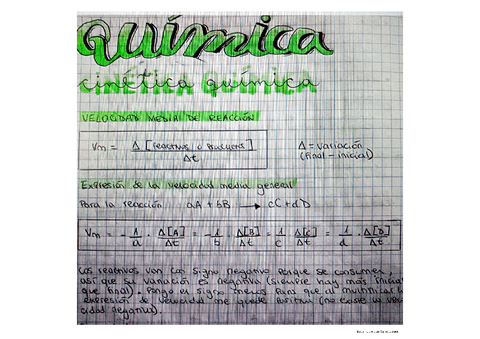 Química
cinética química
VELOCIDAD MEDIA DE REACCIÓN
Vm = Δ [reactivos o productos] / Δt
Δ = variación
(final - inicial)
Expresión de la velocidad media general
Para la reacción aA + bB → cC + dD
Vm = - 1/a · Δ[A]/Δt = - 1/b · Δ[B]/Δt = 1/c · Δ[C]/Δt = 1/d · Δ[D]/Δt
Los reactivos van con signo negativo porque se consumen,
así que su variación es negativa (siempre hay más inicial
que final). Pongo el signo menos para que al multiplicar la
expresión de velocidad me quede positiva (no existe la velo-
cidad negativa).